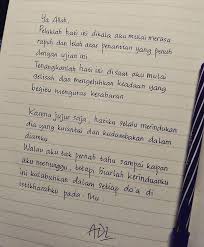 Ya Allah,
Peluklah hati ini dikala aku mulai merasa
rapuh dan lelah atas penantian yang penuh
dengan ujian ini
Tenangkanlah hati ini disaat aku mulai
gelisah dan mengeluhkan keadaan yang
begitu menguras kesabaran
Karena jujur saja, hatiku selalu merindukan
dia yang kucintai dan kudambakan dalam
diamku
Walau aku tak pernah tahu sampai kapan
aku menunggu, tetap biarlah kerinduanku
ini kulabuhkan dalam setiap do'a di
istikharahku pada-Mu
ADL